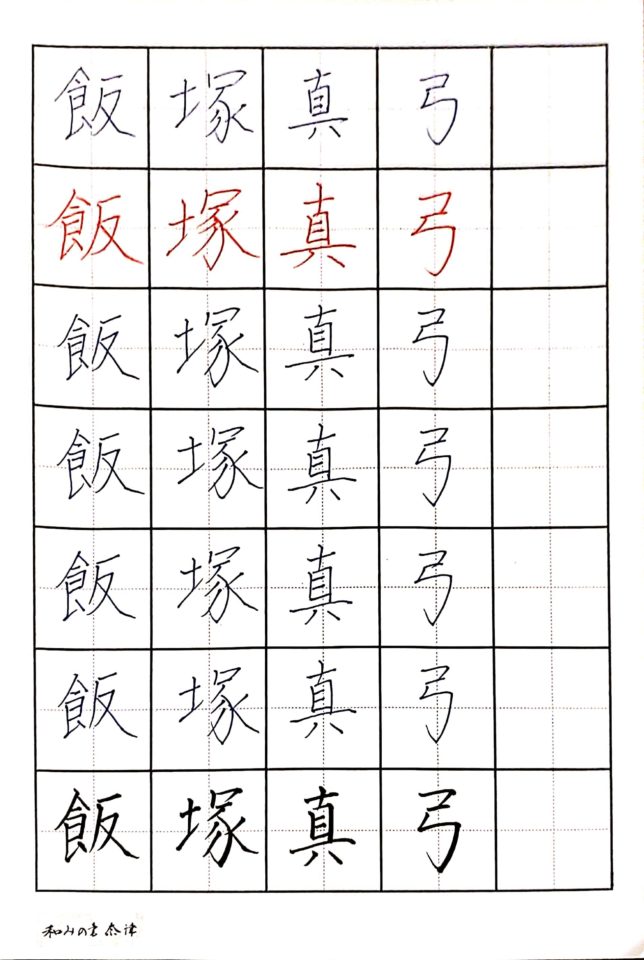 飯塚真弓
飯塚真弓
飯塚真弓
飯塚真弓
飯塚真弓
飯塚真弓
飯塚真弓
和みの書